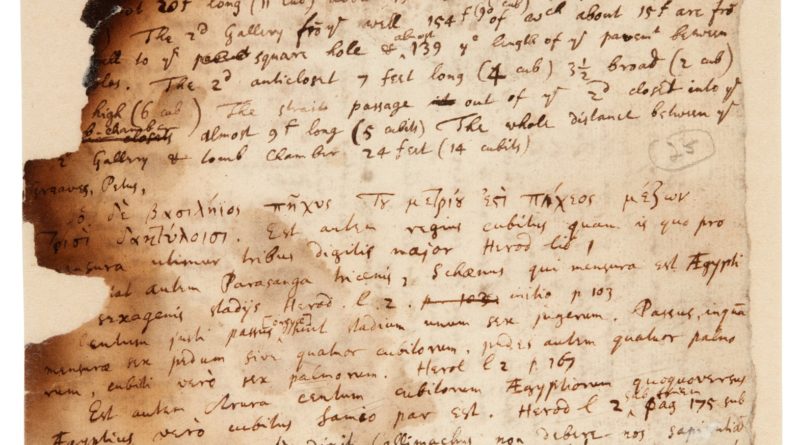 20f long (11 cub)
) The 2d Gallery frō ye well 154f (90 cub) of wch about 15f are frō
well to ye square hole & almost 139 ye length of ye pavent between
holes. The 2d anticloset 7 feet long (4 cub) 3½ broad (2 cub)
high (6 cub) The strait passage out of ye 2d closet into ye
b-chamber almost 9f long (5 cubits) The whole distance between ye
2d Gallery & tomb chamber 24 feet (14 cubits)
25
Greaves, Petus,
ὁ δὲ βασιλήιος πῆχυς τῦ μετρίυ ἐστὶ πήχεος μέζων
τρισὶ δακτύλοισι. Est autem regius cubitus quam is quo pro
mensura utimur tribus digitis major Herod lib 1
autem Parasanga tricenis, Schænus qui mensura est Ægypti
sexagenis stadijs Herod. l. 2. initio p 103
Centum justi passus stadium unum sex jugerum. Passus, inquā
mensuræ sex pedum sive quatuor cubitorum, pedes autem quatuor palmo
rum, cubiti verò sex palmorum. Herod l 2 p. 167
Est autem Arura centum cubitorum Ægyptiorum quoquoversus
Ægyptius vero cubitus Samio par est. Herod l 2, pag 175 sub
digit (Callimachus non debere nos